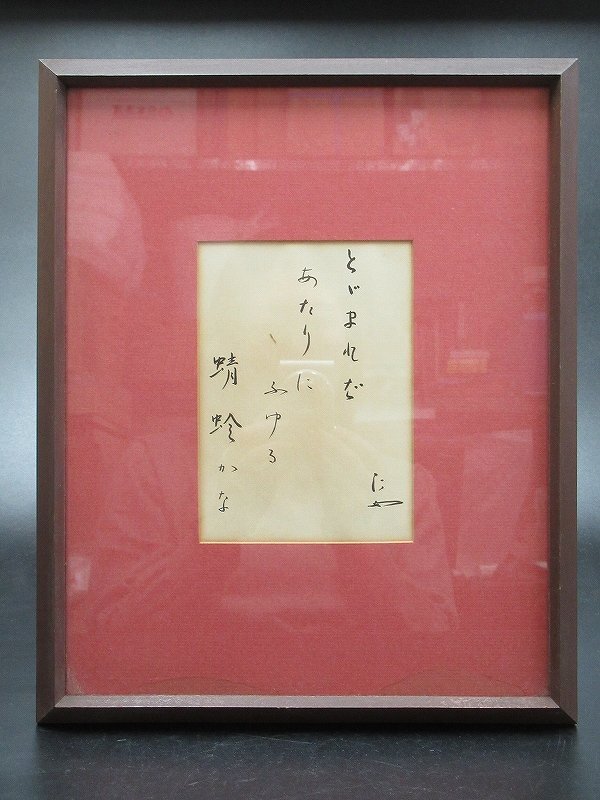 汀女
とゞまれば
あたりに
ふゆる
蜻蛉かな